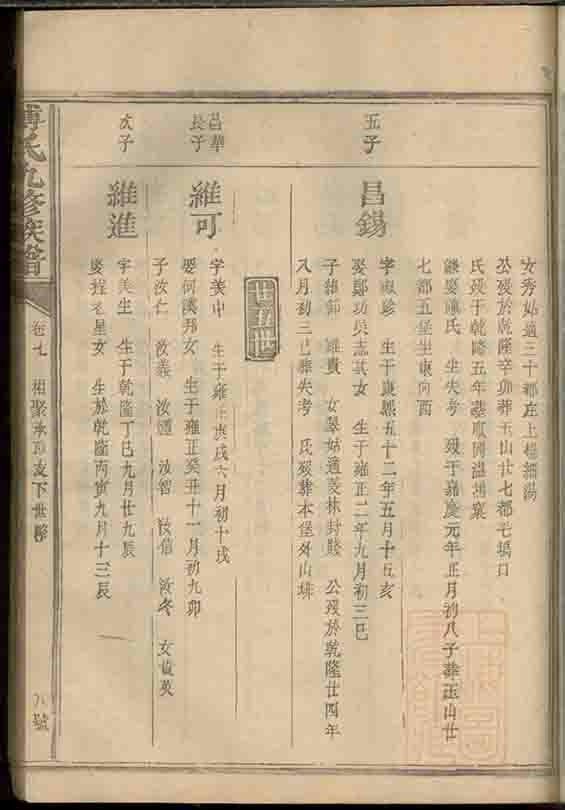 女秀姑適三十都庄上楊細陽
公歿於乾隆辛卯葬玉山廿七都七塢口
氏歿于乾隆五年墓取同溫
繼娶陳氏 生失考 歿于嘉慶元年正月初八子葬玉山廿
七都五堡坐東向西
五子
昌錫
字 珍 生于康熙五十二年五月十五亥
娶鄭功吳志其女 生于雍正二年九月初三巳
子維師 維貴 女翠姑適菱林封 公歿於乾隆廿四年
八月初三巳葬失考 氏歿葬本堡外山排
廿五世
昌華長子
維可
字美中 生于雍正庚戌六月初十戌
娶何漢邦女 生于雍正癸丑十一月初九卯
子汝仁 汝義 汝通 汝智 汝信 汝冬 女 英
次子
維進
字美生 生于乾隆丁巳九月廿九辰
娶程老星女 生於乾隆丙寅九月十三辰
傅氏九修族譜
卷七 相聚承 支下世
八號